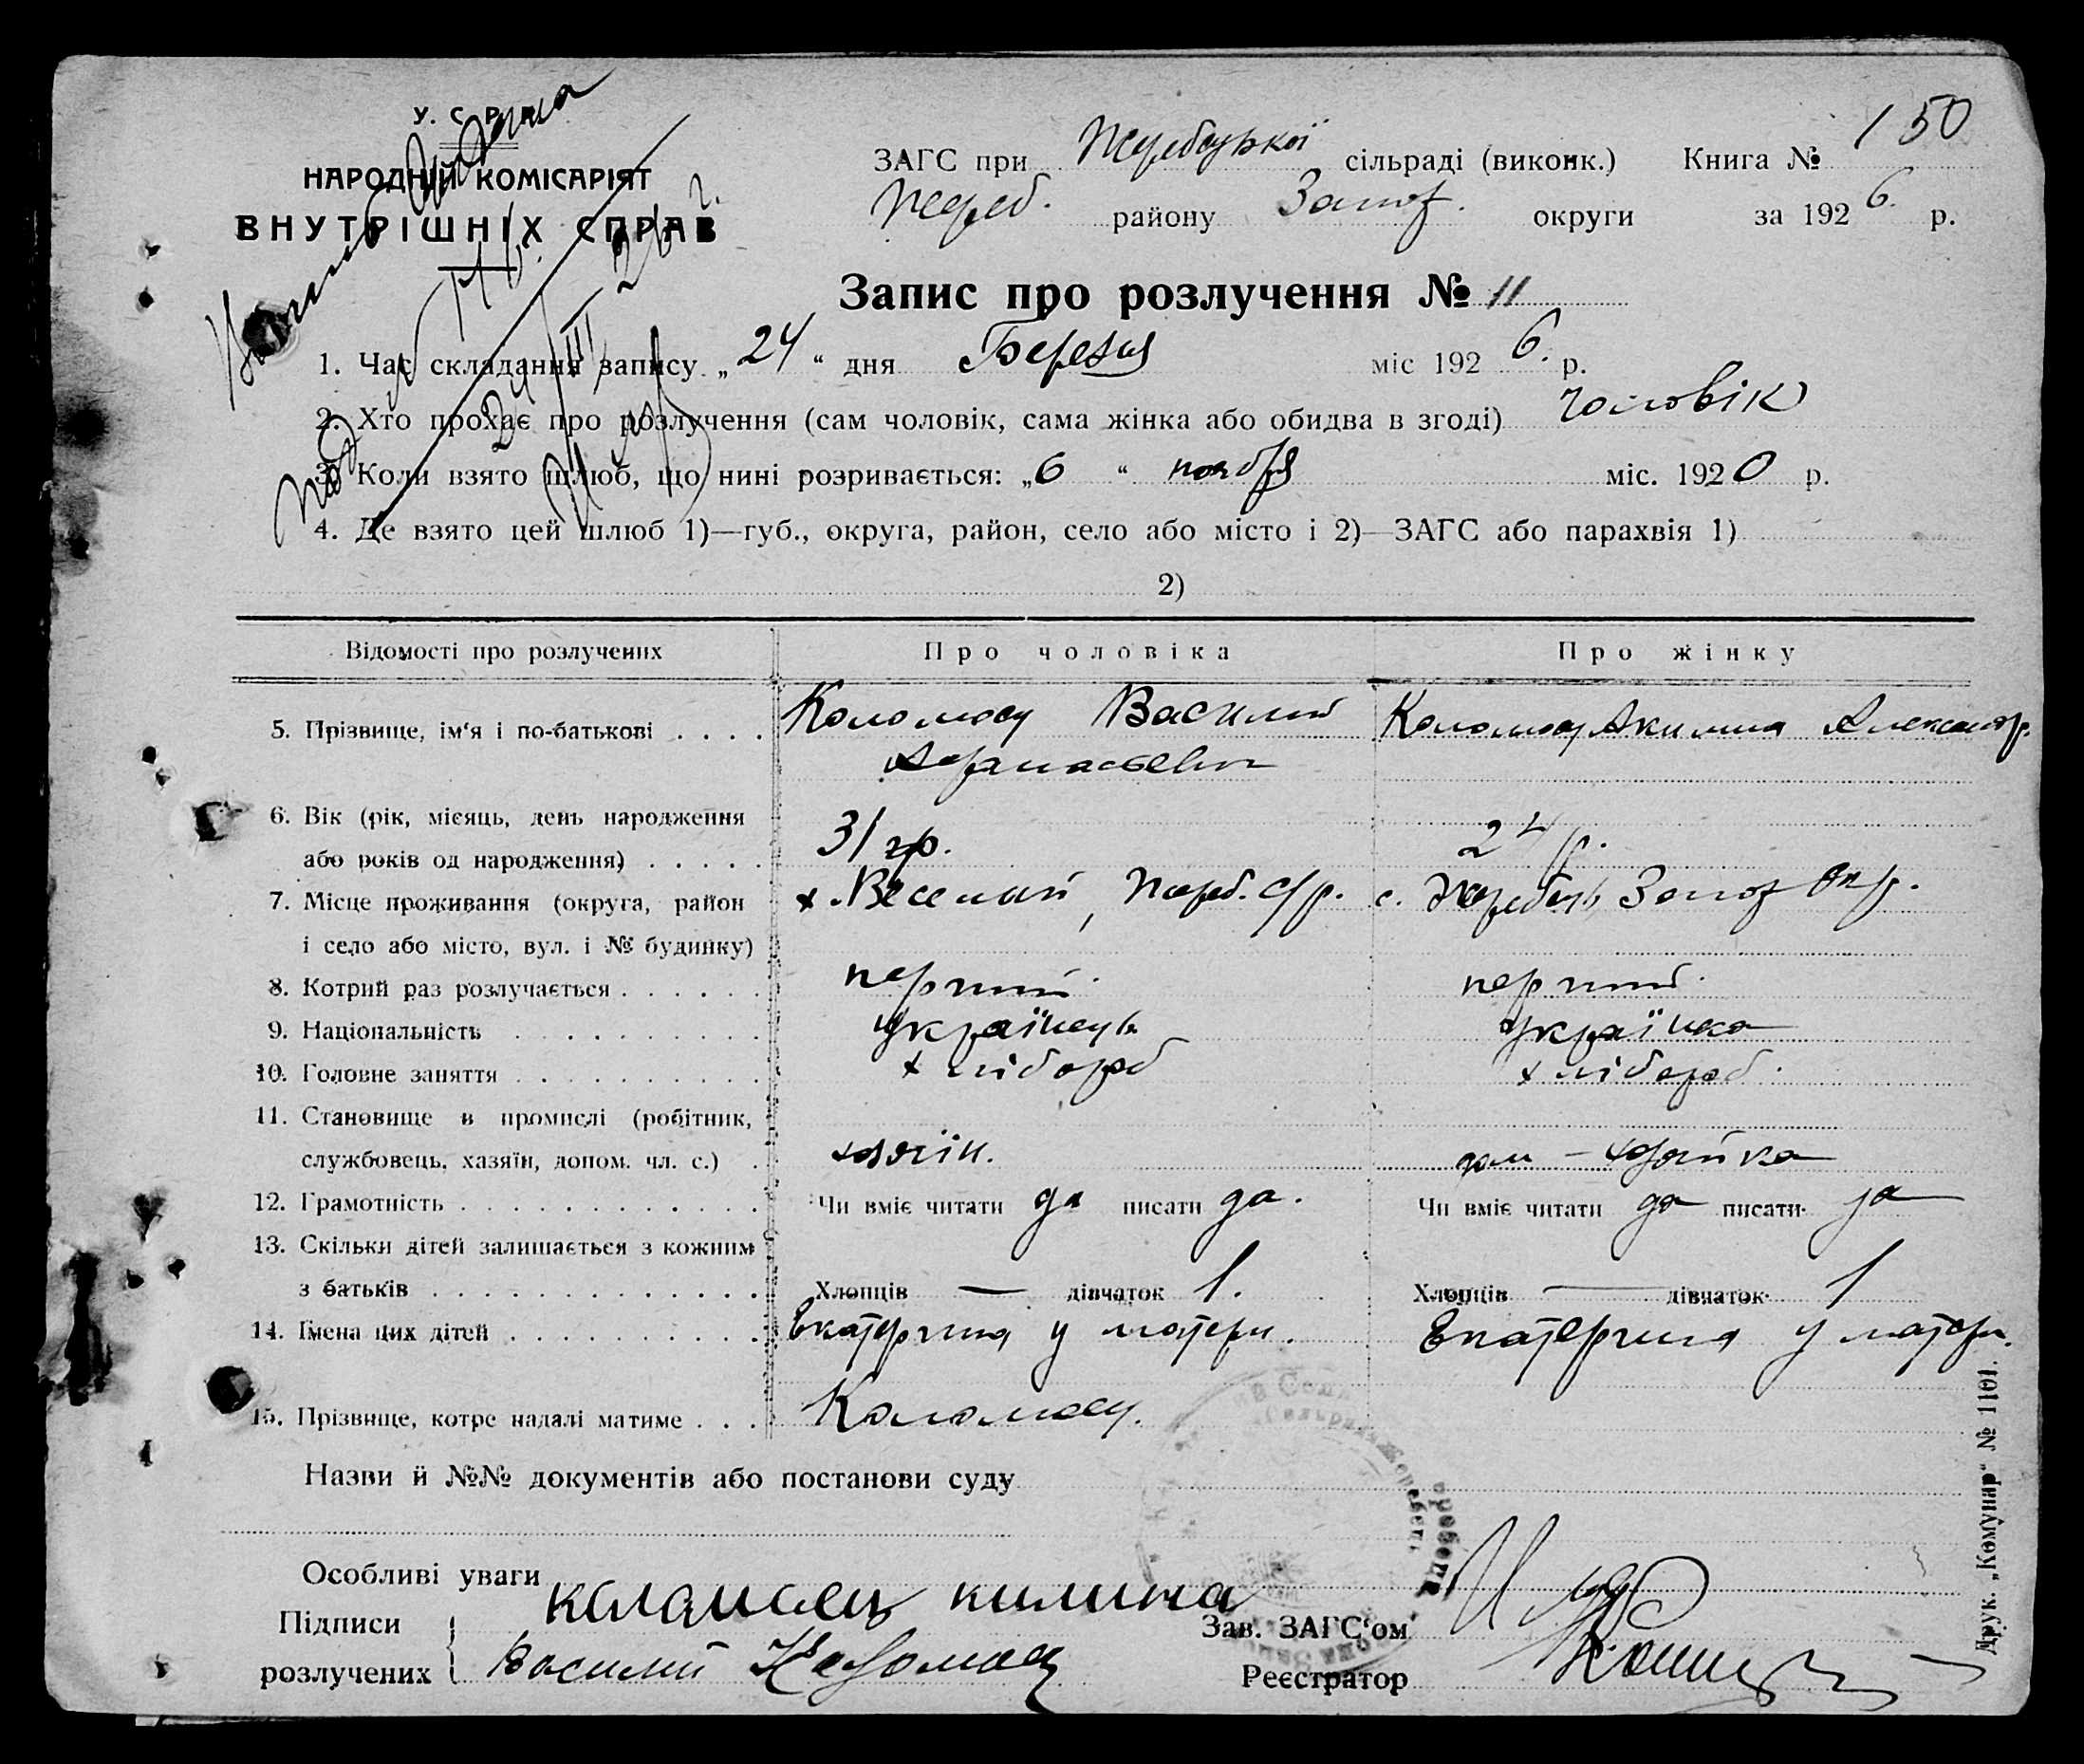 У. С. Р. Р.
НАРОДНІЙ КОМІСАРІЯТ
ВНУТРІШНІХ СПРАВ
150
ЗАГС при Жеребецької сільраді (виконк.) Книга №
Жереб. району Запор. округи за 1926 р.
Запис про розлучення № 11
1. Час складання запису „24“ дня Березня міс 1926. р.
2. Хто прохає про розлучення (сам чоловік, сама жінка або обидва в згоді) чоловік
3. Коли взято шлюб, що нині розривається: „6“ ноября міс. 1920 р.
4. Де взято цей шлюб 1)—губ., округа, район, село або місто і 2)—ЗАГС або парахвія 1)
2)
Відомості про розлучених Про чоловіка Про жінку
5. Прізвище, ім‘я і по-батькові . . . . Коломоец Василий Коломоец Акилина Александр.
Афанасьевич
6. Вік (рік, місяць, день народження
або років од народження) . . . . . 31 гр. 24 р.
7. Місце проживання (округа, район х. Веселий, Жереб. с/р. с. Жеребець Запор Окр.
і село або місто, вул. і № будинку)
8. Котрий раз розлучається . . . . . . перший. перший.
9. Національність . . . . . . . . . українець українка
10. Головне заняття . . . . . . . . . хлібороб хлібороб.
11. Становище в промислі (робітник,
службовець, хазяїн, допом. чл. с.) . хозяїн. дом - хозяйка
12. Грамотність . . . . . . . . . . . Чи вміє читати да писати да. Чи вміє читати да писати да
13. Скільки дітей залишається з кожним
з батьків . . . . . . . . . . . . Хлопців — дівчаток 1. Хлопців — дівчаток 1
14. Імена цих дітей . . . . . . . . . Екатерина у матери. Екатерина у матери.
15. Прізвище, котре надалі матиме . . . Коломоец.
Назви й №№ документів або постанови суду
Особливі уваги
Підписи коламоец килина Зав. ЗАГС‘ом
розлучених Василий Коломоец Реєстратор
Друк. „Комунар“ № 1101.